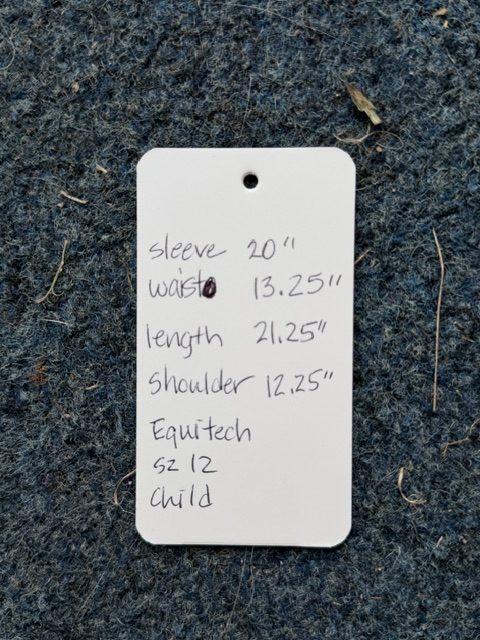 sleeve 20"
waist 13.25"
length 21.25"
shoulder 12.25"
Equitech
sz 12
Child